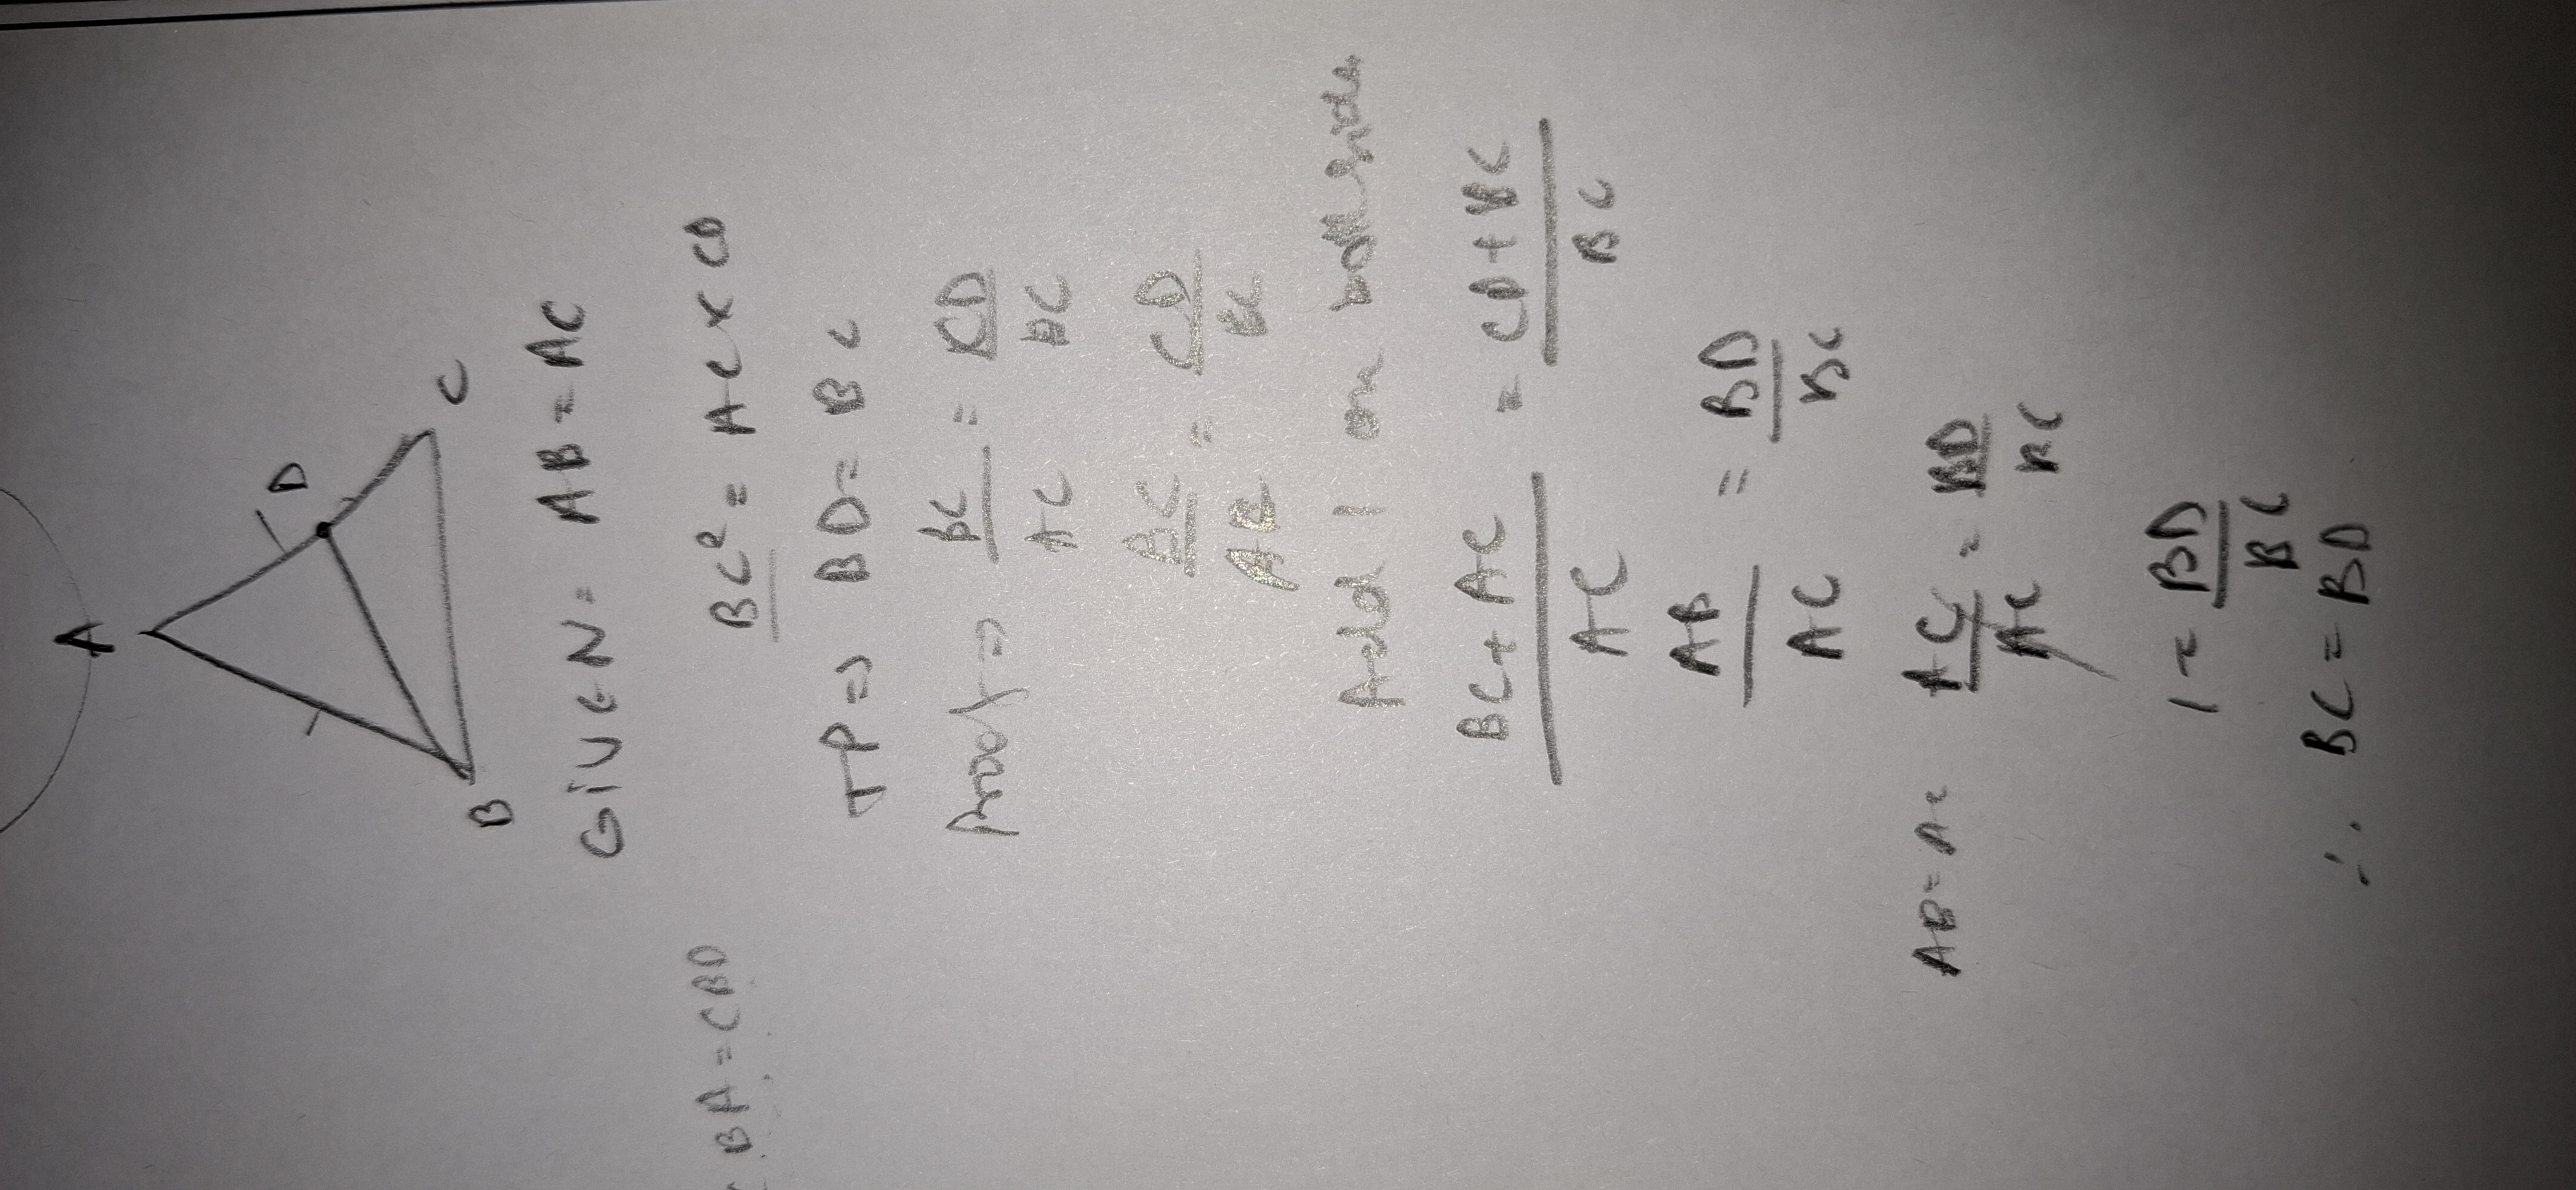 A
D
B
C
GIVEN = AB = AC
BA = CBD
BC² = AC × CD
TP ⇒ BD = BC
Proof ⇒ BC/AC = CD/BC
BC/AB = CD/BC
Add 1 on both sides
BC + AC/AC = CD + BC/BC
AB/AC = BD/BC
AB = AC AC/AC = BD/BC
1 = BD/BC
∴ BC = BD